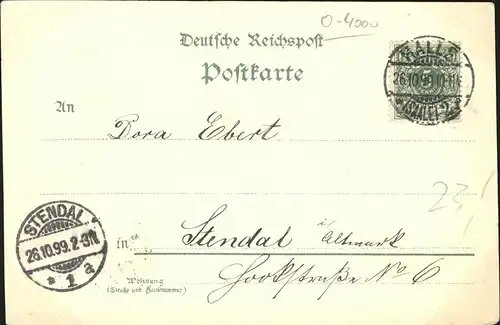 0-4000
Deutsche Reichspost
Postkarte
HALLE
26.10.99.10-11V.
(SAALE) 2
An
Dora Ebert
23
STENDAL
26.10.99.2-3N.
* 1 a
in Stendal i/ Altmark
Wohnung
(Straße und Hausnummer)
Hookstraße No 6